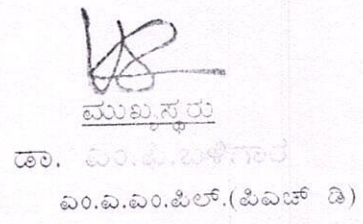 ಮುಖ್ಯಸ್ಥರು
ಡಾ. ಎಂ.ಪಿ.ಬಳಿಗಾರ
ಎಂ.ಎ.ಎಂ.ಪಿಲ್.(ಪಿಎಚ್ ಡಿ)